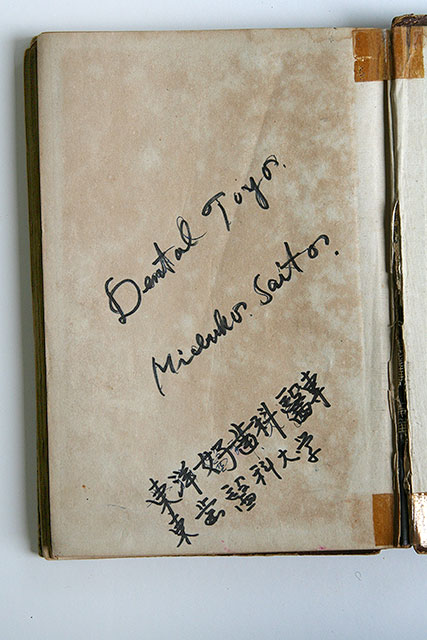 Dental Toyo.
Saito.
東洋女子歯科醫専
東歯醫科大学